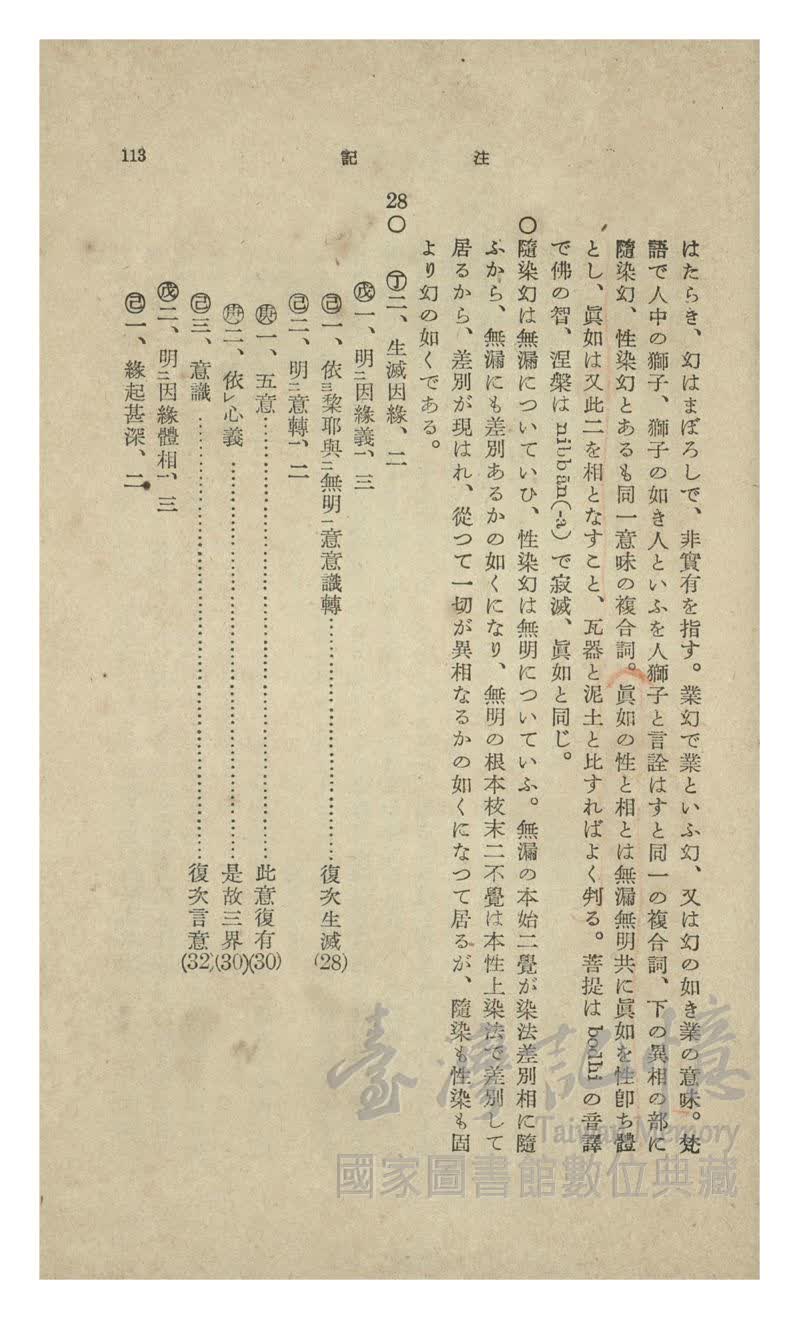 注記
113
はたらき、幻はまぼろしで、非實有を指す。業幻で業といふ幻、又は幻の如き業の意味。梵
語で人中の獅子、獅子の如き人といふを人獅子と言詮はすと同一の複合詞、下の異相の部に
隨染幻、性染幻とあるも同一意味の複合詞。眞如の性と相とは無漏無明共に眞如を性卽ち體
とし、眞如は又此二を相となすこと、瓦器と泥土と比すればよく判る。菩提は bodhi の音譯
で佛の智、涅槃は nibbān(-a) で寂滅、眞如と同じ。
〇隨染幻は無漏についていひ、性染幻は無明についていふ。無漏の本始二覺が染法差別相に隨
ふから、無漏にも差別あるかの如くになり、無明の根本枝末二不覺は本性上染法で差別して
居るから、差別が現はれ、從つて一切が異相なるかの如くになつて居るが、隨染も性染も固
より幻の如くである。
28〇 ㊀丁二、生滅因緣、二
戊一、明二因緣義一、三
己一、依三黎耶與二無明一意意識轉……復次生滅(28)
己二、明二意轉一、二
庚一、五意……此意復有(30)
庚二、依レ心義……是故三界(30)
己三、意識……復次言意(32)
戊二、明二因緣體相一、三
己一、緣起甚深、二
臺灣記憶
Taiwan Memory
國家圖書館數位典藏